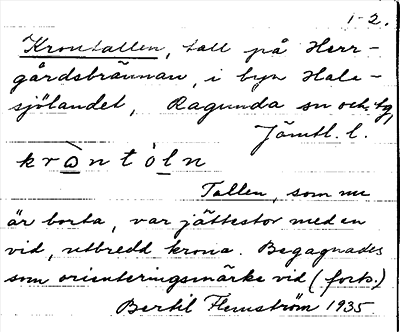 1-2.
Krontallen, tall på Herr-
gårdsbrännan, i byn Hale-
sjölandet, Ragunda sn och tg,
Jämtl. l.
kròntòln
Tallen, som nu
är borta, var jättestor med en
vid, utbredd krona. Begagnades
som orienteringsmärke vid (forts.)
Bertil Flemström 1935.